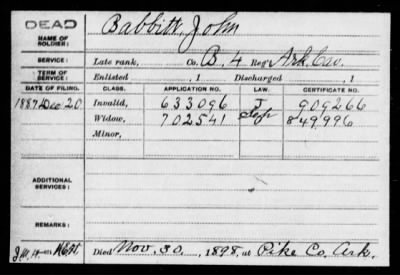 DEAD
NAME OF SOLDIER: Babbitt, John
SERVICE: Late rank, Co. B, 4 Reg't Ark. Cav.
TERM OF SERVICE: Enlisted , 1 Discharged , 1
DATE OF FILING. CLASS. APPLICATION NO. LAW. CERTIFICATE NO.
1887 Dec 20. Invalid, 633096 J 909266
Widow, 702541 849996
Minor,
ADDITIONAL SERVICES:
REMARKS:
Died Nov. 30, 1898, at Pike Co. Ark.